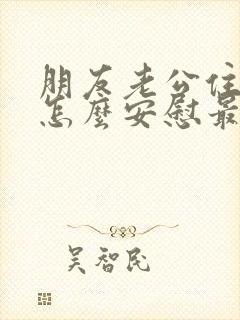 朋友老公住
怎麼安慰最
吴智民